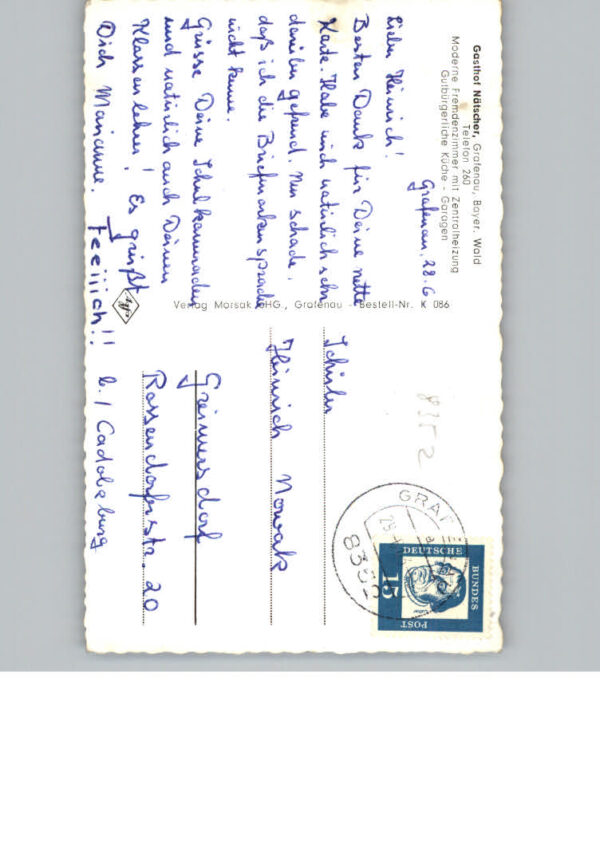 Gasthof Nätscher, Grafenau, Bayer. Wald
Telefon 260
Moderne Fremdenzimmer mit Zentralheizung
Gutbürgerliche Küche - Garagen
Grafenau, 28.6
Lieber Heinrich!
Besten Dank für Deine nette
Karte. Habe mich natürlich sehr
darüber gefreut. Nur schade,
daß ich die Briefmarkensprache
nicht kenne.
Grüsse Deine Schulkameraden
und natürlich auch Deinen
Klassenlehrer! Es grüßt
Dich Marianne. Feeiiich!!
Verlag Morsak OHG., Grafenau - Bestell-Nr. K 086
Schüler
Heinrich Nowak
Greimersdorf
Rossendorferstr. 20
b./Cadolzburg
8352
GRAFENAU
8352
DEUTSCHE
BUNDES
POST
15